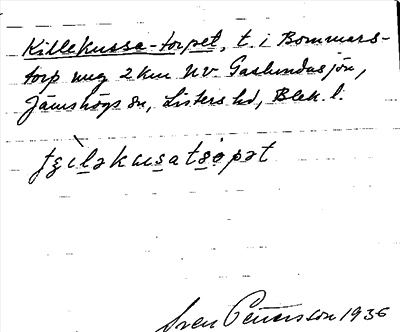 Killekussa-torpet, t. i Bommars-
torp umg 2 km NV Gaslundasjön,
Jämshögs sn, Listers hd, Blek. l.
Sven Pettersson 1936